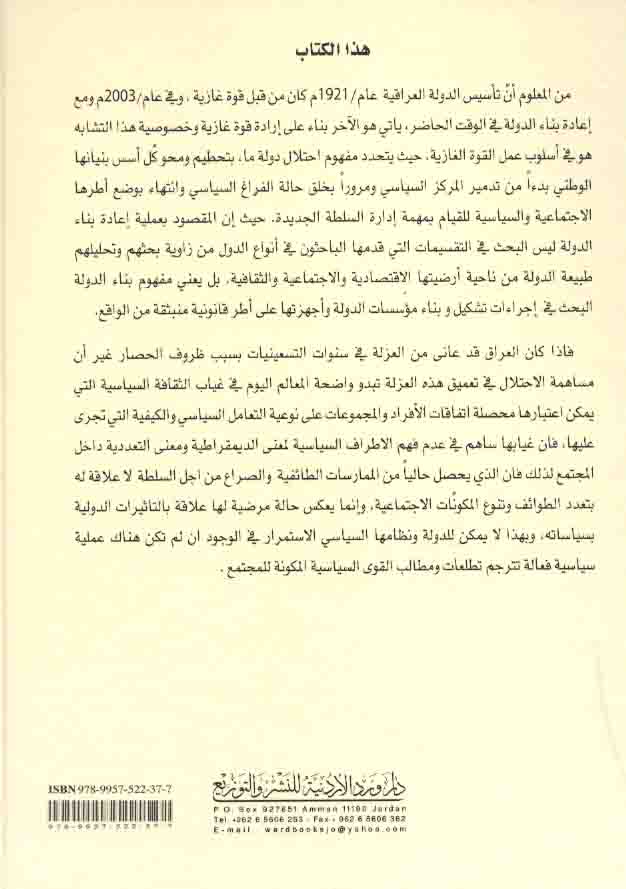 هذا الكتاب
من المعلوم أنّ تأسيس الدولة العراقية عام/1921م كان من قبل قوة غازية ، وفي عام/2003م ومع
إعادة بناء الدولة في الوقت الحاضر، يأتي هو الآخر بناء على إرادة قوة غازية وخصوصية هذا التشابه
هو في أسلوب عمل القوة الغازية، حيث يتحدد مفهوم احتلال دولة ما، بتحطيم ومحو كل أسس بنيانها
الوطني بدءاً من تدمير المركز السياسي ومروراً بخلق حالة الفراغ السياسي وانتهاء بوضع أطرها
الاجتماعية والسياسية للقيام بمهمة إدارة السلطة الجديدة، حيث إن المقصود بعملية إعادة بناء
الدولة ليس البحث في التقسيمات التي قدمها الباحثون في أنواع الدول من زاوية بحثهم وتحليلهم
طبيعة الدولة من ناحية أرضيتها الاقتصادية والاجتماعية والثقافية، بل يعني مفهوم بناء الدولة
البحث في إجراءات تشكيل و بناء مؤسسات الدولة وأجهزتها على أطر قانونية منبثقة من الواقع.
فاذا كان العراق قد عانى من العزلة في سنوات التسعينيات بسبب ظروف الحصار غير أن
مساهمة الاحتلال في تعميق هذه العزلة تبدو واضحة المعالم اليوم في غياب الثقافة السياسية التي
يمكن اعتبارها محصلة اتفاقات الأفراد والمجموعات على نوعية التعامل السياسي والكيفية التي تجرى
عليها، فان غيابها ساهم في عدم فهم الاطراف السياسية لمعنى الديمقراطية ومعنى التعددية داخل
المجتمع لذلك فان الذي يحصل حالياً من الممارسات الطائفية والصراع من اجل السلطة لا علاقة له
بتعدد الطوائف وتنوع المكونات الاجتماعية، وإنما يعكس حالة مرضية لها علاقة بالتاثيرات الدولية
بسياساته، وبهذا لا يمكن للدولة ونظامها السياسي الاستمرار في الوجود ان لم تكن هناك عملية
سياسية فعالة تترجم تطلعات ومطالب القوى السياسية المكونة للمجتمع .
دار ورد الأردنية للنشر والتوزيع
P.O. Box 927651 Amman 11190 Jordan
Tel: +962 6 5606 263 - Fax + 962 6 5606 362
E-mail: wardbooksjo@yahoo.com
ISBN 978-9957-522-37-7
978-9957-522-37-7